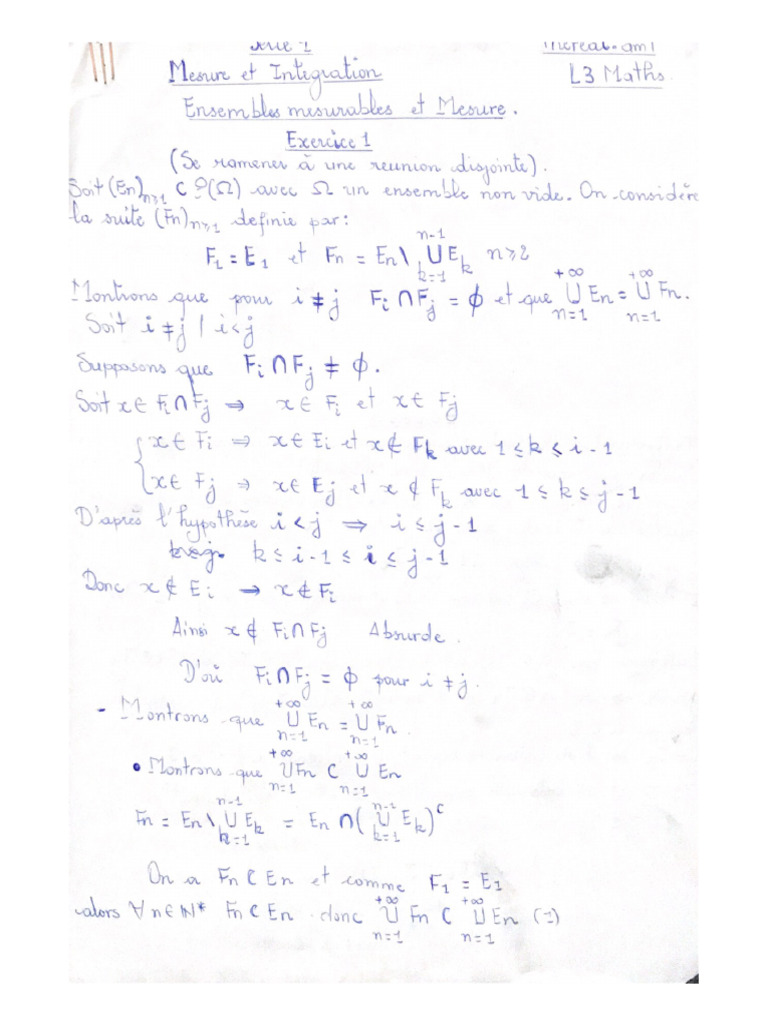 Serie 1
Mesure et Integration L3 Maths.
Ensembles mesurables et Mesure.
Exercice 1
(Se ramener à une reunion disjointe).
Soit (En)n≥1 ⊂ P(Ω) avec Ω un ensemble non vide. On considère
la suite (Fn)n≥1 definie par:
F1 = E1 et Fn = En \ ⋃_{k=1}^{n-1} Ek n≥2
Montrons que pour i ≠ j Fi ∩ Fj = ϕ et que ⋃_{n=1}^{+∞} En = ⋃_{n=1}^{+∞} Fn.
Soit i ≠ j / i < j
Supposons que Fi ∩ Fj ≠ ϕ.
Soit x ∈ Fi ∩ Fj ⇒ x ∈ Fi et x ∈ Fj
{ x ∈ Fi ⇒ x ∈ Ei et x ∉ Fk avec 1 ≤ k ≤ i-1
x ∈ Fj ⇒ x ∈ Ej et x ∉ Fk avec 1 ≤ k ≤ j-1
D'après l'hypothèse i < j ⇒ i ≤ j-1
k ≤ i-1 ≤ i ≤ j-1
Donc x ∉ Ei → x ∉ Fi
Ainsi x ∉ Fi ∩ Fj Absurde.
D'où Fi ∩ Fj = ϕ pour i ≠ j.
- Montrons que ⋃_{n=1}^{+∞} En = ⋃_{n=1}^{+∞} Fn.
• Montrons que ⋃_{n=1}^{+∞} Fn ⊂ ⋃_{n=1}^{+∞} En
Fn = En \ ⋃_{k=1}^{n-1} Ek = En ∩ (⋃_{k=1}^{n-1} Ek)^c
On a Fn ⊂ En et comme F1 = E1
alors ∀n ∈ ℕ* Fn ⊂ En donc ⋃_{n=1}^{+∞} Fn ⊂ ⋃_{n=1}^{+∞} En (1)